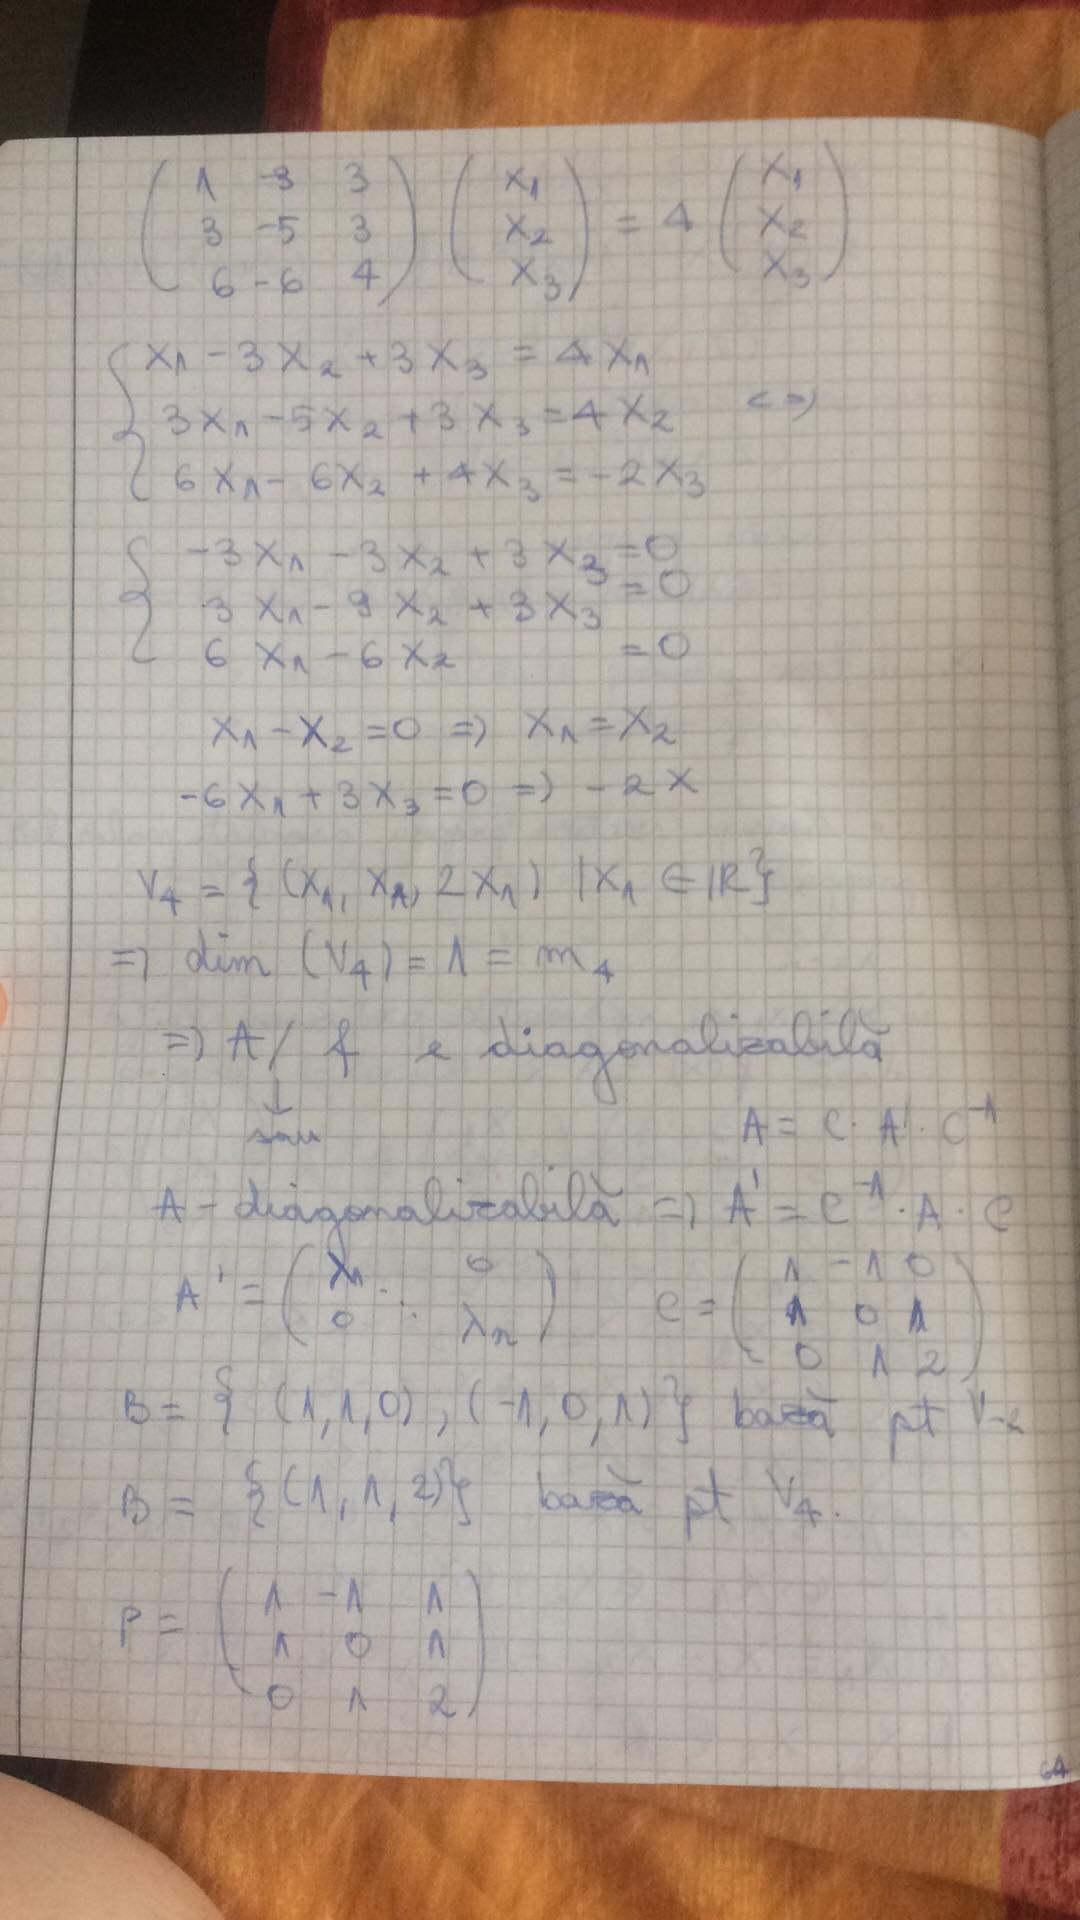 ( 1 -3 3 ) ( x1 ) = 4 ( x1 )
( 3 -5 3 ) ( x2 ) ( x2 )
( 6 -6 4 ) ( x3 ) ( x3 )
{ x1 - 3x2 + 3x3 = 4x1
3x1 - 5x2 + 3x3 = 4x2 <=>
6x1 - 6x2 + 4x3 = -2x3
{ -3x1 - 3x2 + 3x3 = 0
3x1 - 9x2 + 3x3 = 0
6x1 - 6x2 = 0
x1 - x2 = 0 => x1 = x2
-6x1 + 3x3 = 0 => -2x
V4 = { (x1, x1, 2x1) | x1 ∈ IR }
=> dim (V4) = 1 = m4
=> A / f e diagonalizabilă
↓
sau
A = C · A' · C^-1
A - diagonalizabilă => A' = C^-1 · A · C
A' = ( λ1 ⋱ 0 ) C = ( 1 -1 0 )
( 0 λn ) ( 1 0 1 )
( 0 1 2 )
B = { (1,1,0), (-1,0,1) } bază pt V-2
B = { (1,1,2) } bază pt V4.
P = ( 1 -1 1 )
( 1 0 1 )
( 0 1 2 )